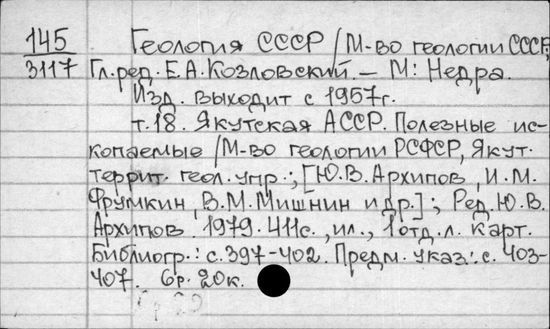 145 Геология СССР / М-во геологии СССР,
3117 Гл. ред. Е.А. Козловский. – М: Недра.
Изд. выходит с 1957г.
т.18. Якутская АССР. Полезные ис-
копаемые / М-во геологии РСФСР, Якут.
террит. геол. упр.; [Ю.В. Архипов, И.М.
Фрумкин, В.М. Мишнин и др.]; Ред. Ю.В.
Архипов. 1979. 411с., ил., 1 отд. л. карт.
Библиогр.: с. 397-402. Предм. указ.: с. 403-
407. 6р. 20к.